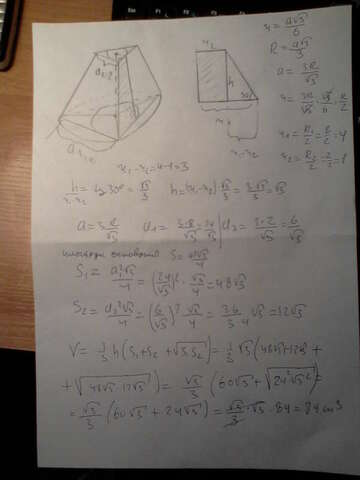 r = a√3/6
R = a√3/3
a = 3R/√3
r = 3R/√3 · √3/6 = R/2
r₁ = R₁/2 = 8/2 = 4
r₂ = R₂/2 = 2/2 = 1
r₂
h
30°
r₁
r₁-r₂
r₁-r₂ = 4-1 = 3
h/(r₁-r₂) = tg 30° = √3/3 h = (r₁-r₂)√3/3 = 3√3/3 = √3
a = 3R/√3 a₁ = 3·8/√3 = 24/√3 | a₂ = 3·2/√3 = 6/√3
площади оснований S = a²√3/4
S₁ = a₁²√3/4 = (24/√3)² · √3/4 = 48√3
S₂ = a₂²√3/4 = (6/√3)² · √3/4 = 36/(3·4) √3 = 12√3
V = 1/3 h (S₁+S₂+√(S₁S₂)) = 1/3 √3 (48√3+12√3 +
+ √(48√3·12√3)) = √3/3 (60√3 + √(24²√3²)) =
= √3/3 (60√3 + 24√3) = √3/3 · √3 · 84 = 84 см³